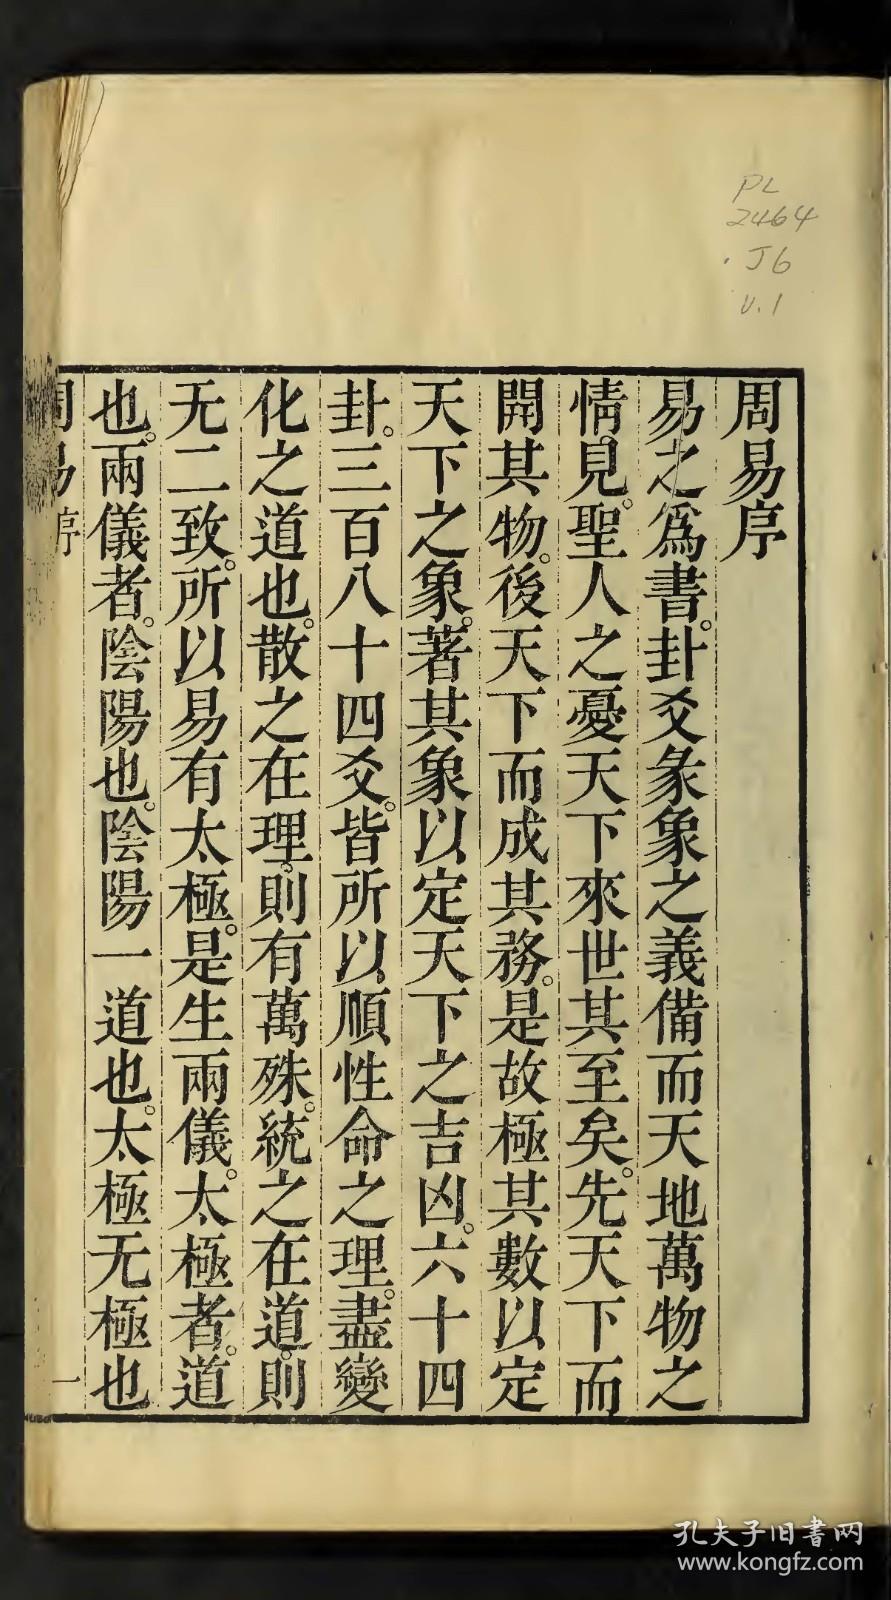 PL
2464
.J6
v.1
周易序
易之爲書。卦爻彖象之義備而天地萬物之
情見。聖人之憂天下來世其至矣。先天下而
開其物。後天下而成其務。是故極其數以定
天下之象。著其象以定天下之吉凶。六十四
卦。三百八十四爻。皆所以順性命之理。盡變
化之道也。散之在理。則有萬殊。統之在道。則
无二致。所以易有太極。是生兩儀。太極者。道
也。兩儀者。陰陽也。陰陽一道也。太極无極也
周易序
一
孔夫子旧書网
www.kongfz.com